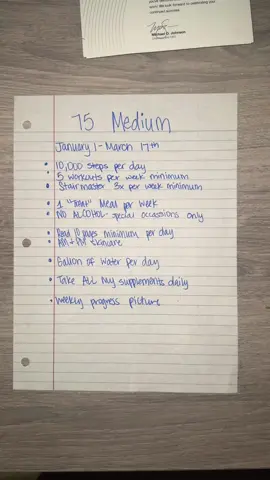 continued success.
Michael D. Johnson
75 Medium
January 1 - March 17th
• 10,000 steps per day
• 5 workouts per week minimum
• Stairmaster 3x per week minimum
• 1 "Treat" Meal per week
• NO ALCOHOL - special occassions only
• Read 10 pages minimum per day
• AM + PM skincare
• Gallon of water per day
• Take ALL my supplements daily
• Weekly progress picture